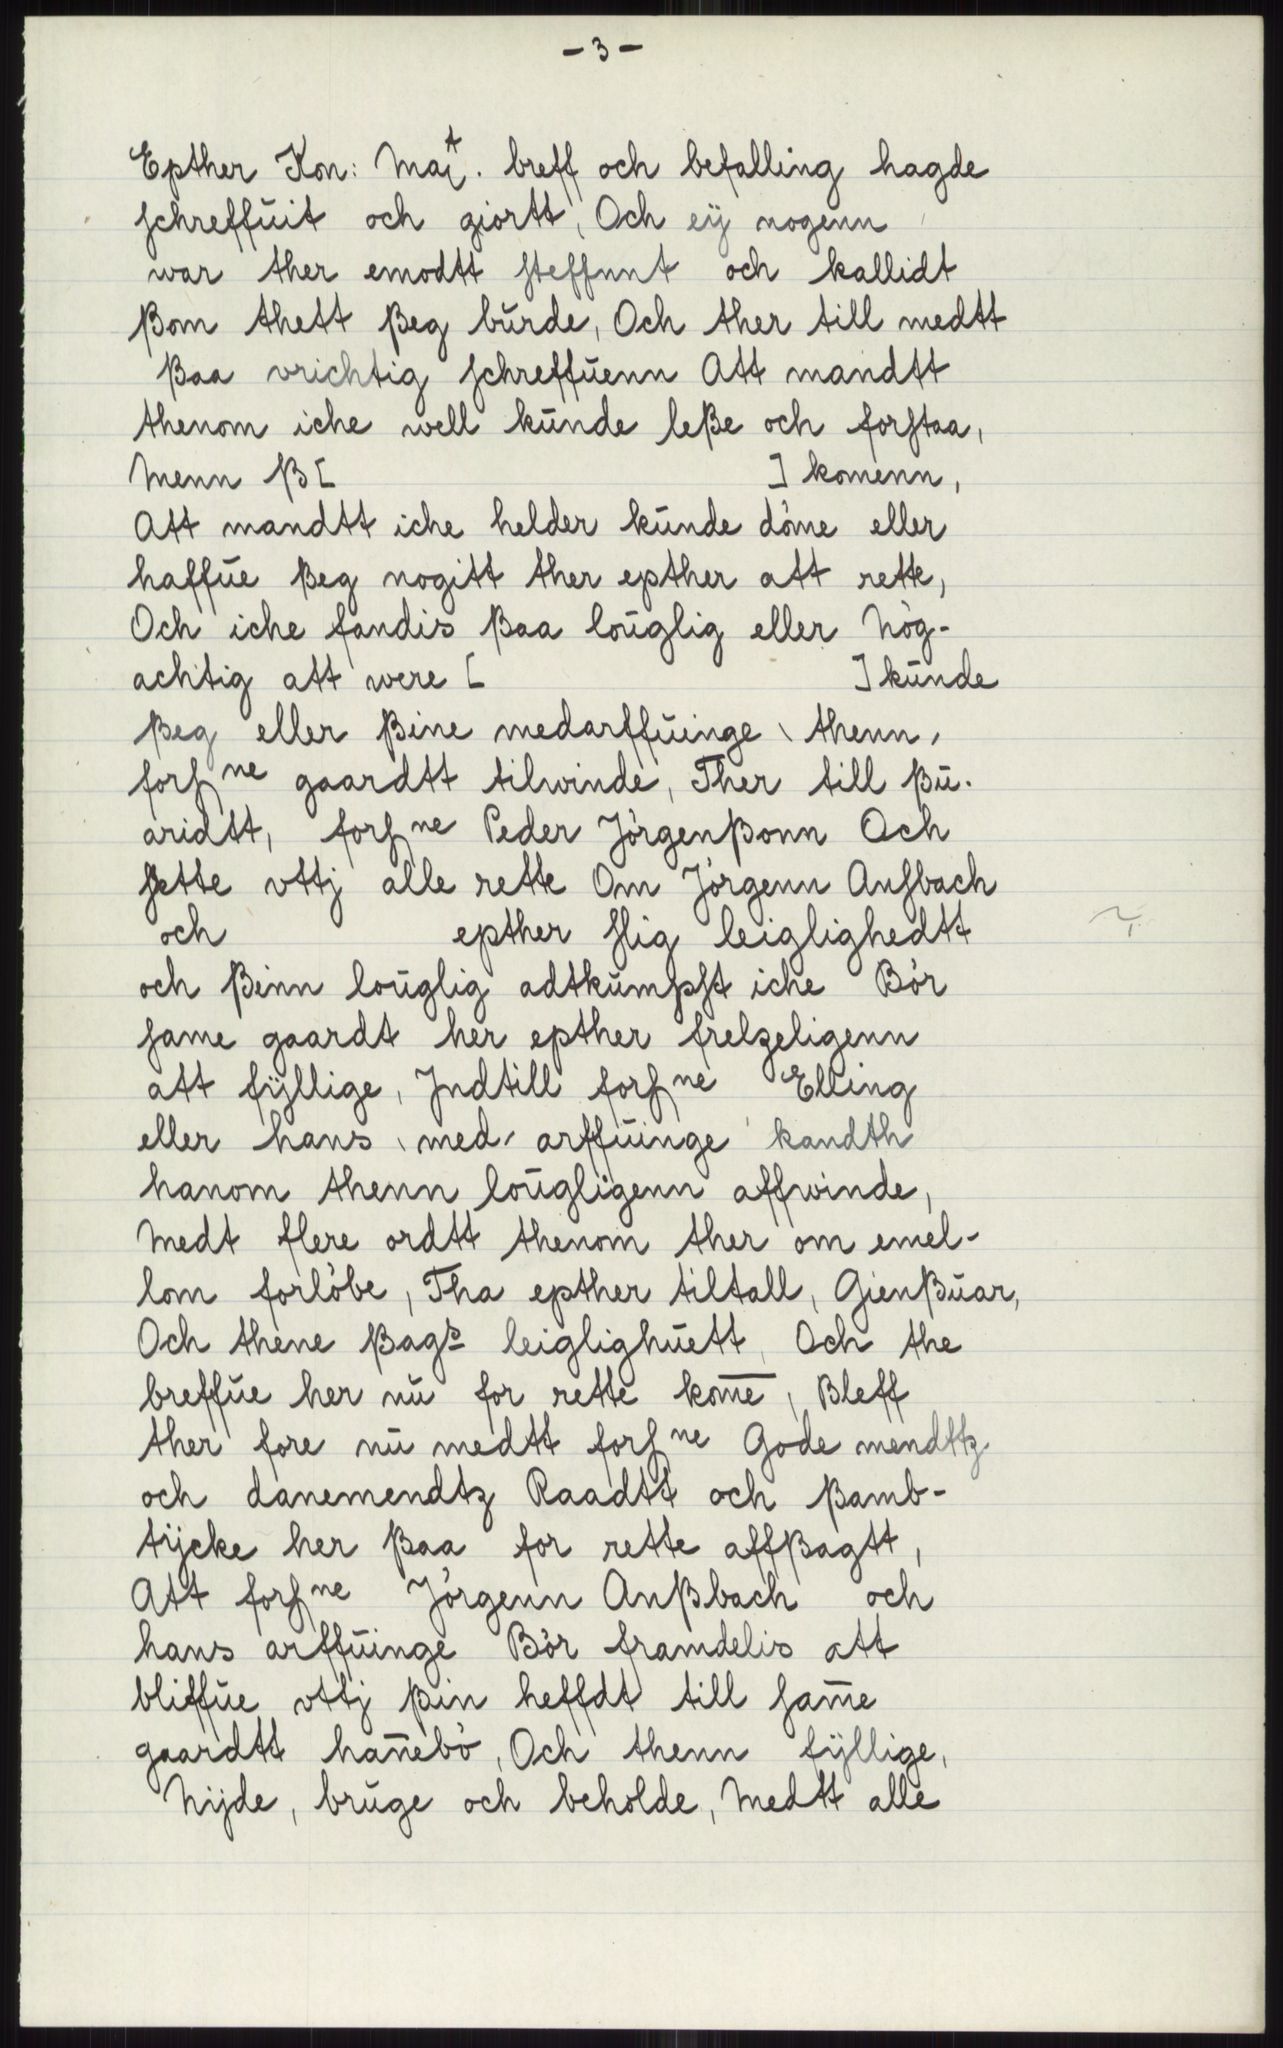 - 3 -
Epther Kon: Maitt. breff och befalling hagde
schreffuit och giortt, Och eÿ nogenn
war ther emodtt steffnnt och kallidt
ßom thett ßeg burde, Och ther till medtt
ßaa vrichtig schreffuenn Att mandtt
thenom iche well kunde leße och forstaa,
Menn ß[ ] komenn,
Att mandtt iche helder kunde döme eller
haffue ßeg nogitt ther epther att rette,
Och iche fandis ßaa louglig eller Nög-
achtig att were [ ] kunde
ßeg eller ßine medarffuinge thenn,
forsne gaardtt tilwinde, Ther till ßu-
aridtt, forsne Peder Jörgenßonn Och
sette vttj alle rette Om Jörgenn Ansbach
och epther slig leiglighedtt
och ßinn louglig adtkumpst iche Bör
same gaardt her epther frelzeligenn
att fÿllige, Jndtill forsne Elling
eller hans med arffuinge kandth
hanom thenn lougligenn affwinde,
Medt flere ordtt thenom ther om emel-
lom forlöbe, Tha epther tiltall, Gienßuar,
Och thene ßags leiglighuett, Och the
breffue her nu for rette kom̅e, Bleff
ther fore nu medtt forsne Gode mendttz
och danemendtz Raadtt och ßamb-
tÿcke her ßaa for rette affßagtt,
Att forsne Jörgenn Anßbach och
hans arffuinge Bör framdelis att
bliffue vttj ßin heffdt till sam̅e
gaardtt han̅ebö, Och thenn fÿllige,
Nÿde, bruge och beholde, Medtt alle